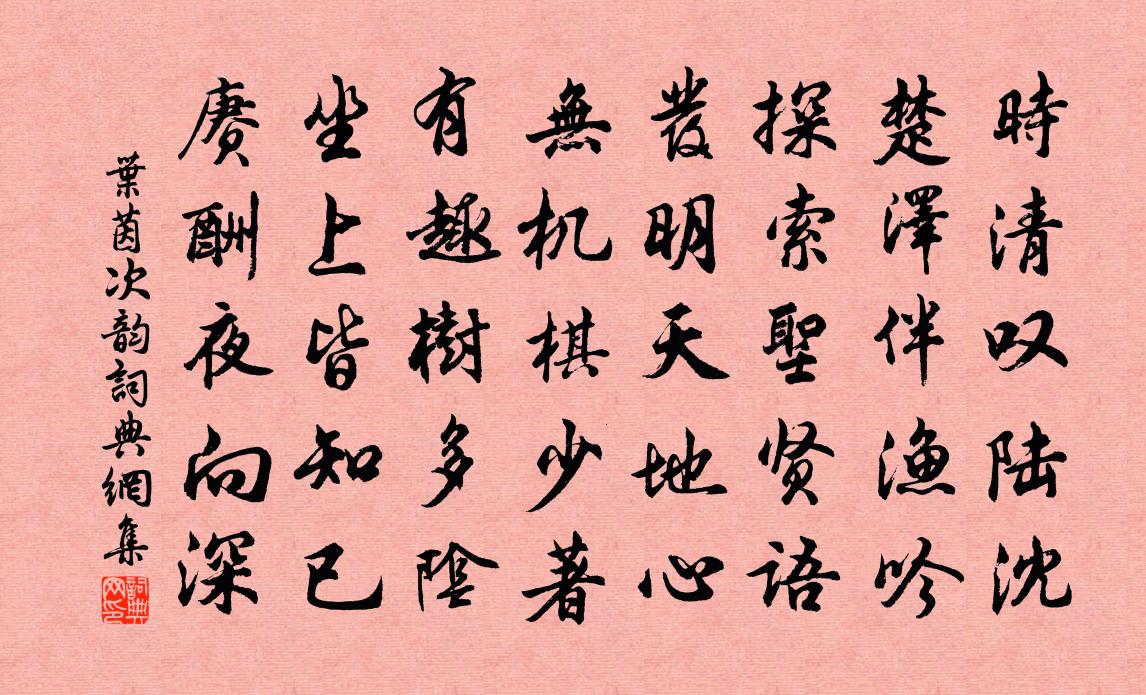 時清叹陆沈
楚澤伴漁吟
探索聖贤語
发明天地心
無机棋少著
有趣樹多陰
坐上皆知已
赓酬夜向深
葉茵次韵詞典網集
詞典网印